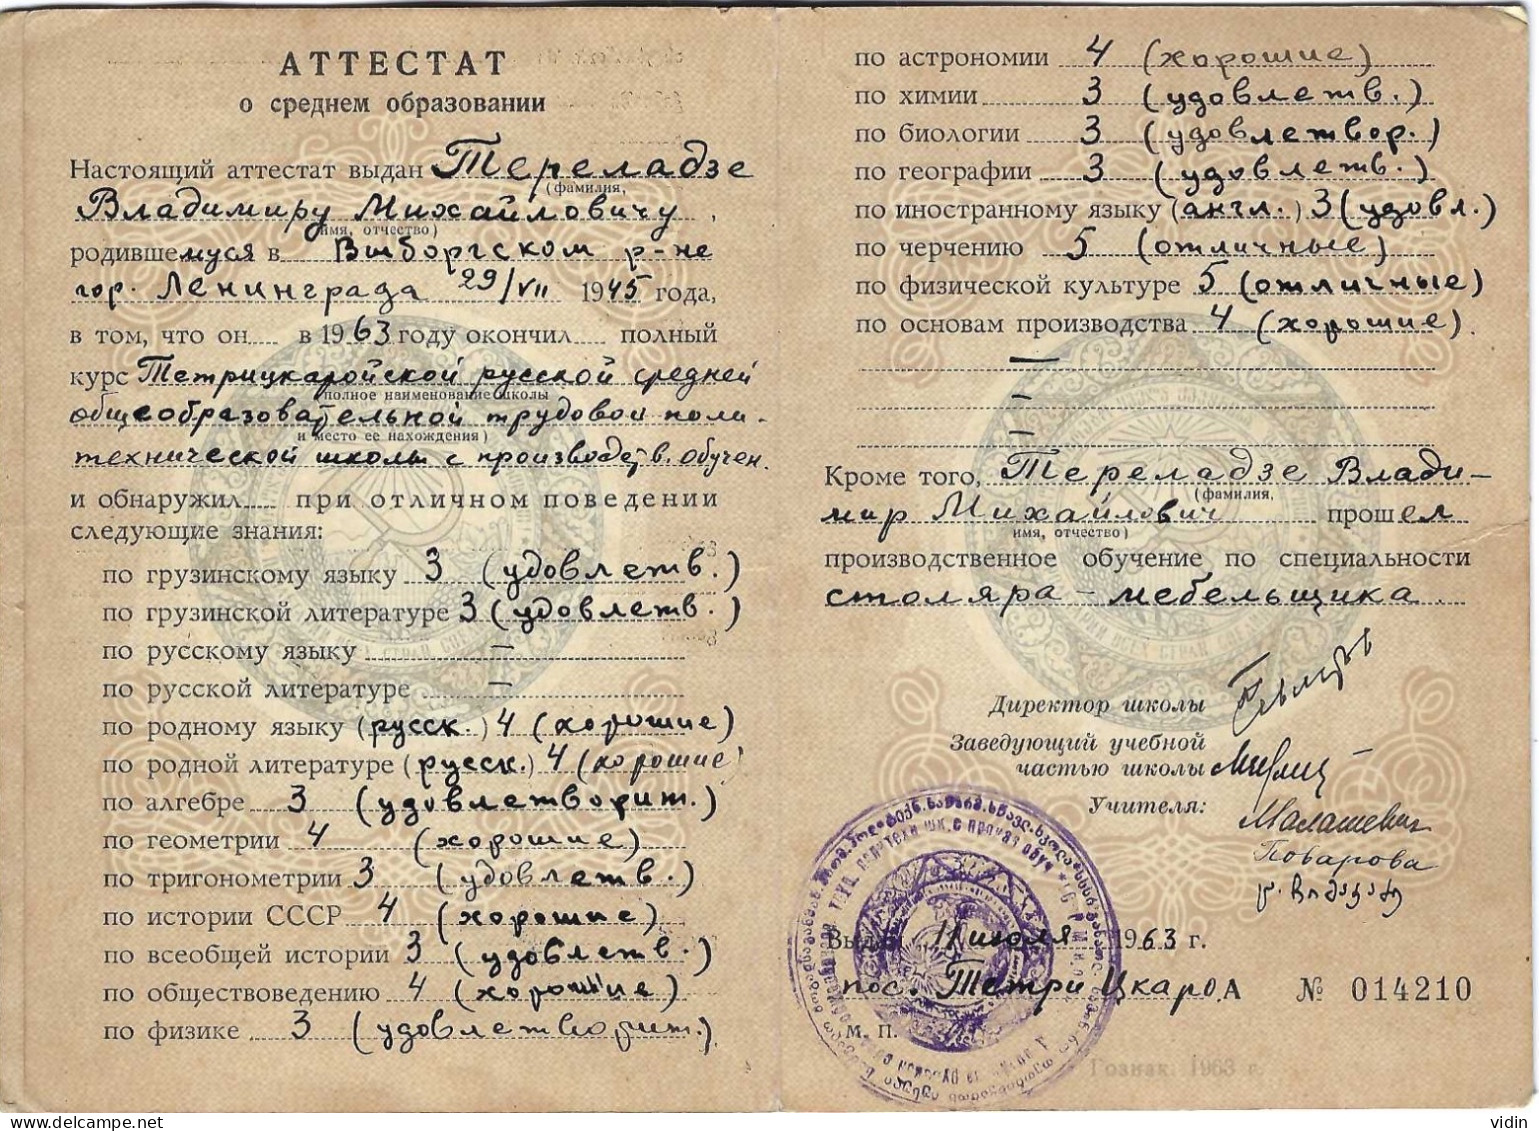 АТТЕСТАТ
о среднем образовании
Настоящий аттестат выдан Тереладзе
(фамилия,
Владимиру Михайловичу,
имя, отчество)
родившемуся в Выборгском р-не
гор. Ленинграда 29/VII 1945 года,
в том, что он в 1963 году окончил полный
курс Тетрицкаройской русской средней
(полное наименование школы
общеобразовательной трудовой поли-
и место ее нахождения)
технической школы с производств. обучен.
и обнаружил при отличном поведении
следующие знания:
по грузинскому языку 3 (удовлетв.)
по грузинской литературе 3 (удовлетв.)
по русскому языку —
по русской литературе —
по родному языку (русск.) 4 (хорошие)
по родной литературе (русск.) 4 (хорошие)
по алгебре 3 (удовлетворит.)
по геометрии 4 (хорошие)
по тригонометрии 3 (удовлетв.)
по истории СССР 4 (хорошие)
по всеобщей истории 3 (удовлетв.)
по обществоведению 4 (хорошие)
по физике 3 (удовлетворит.)
по астрономии 4 (хорошие)
по химии 3 (удовлетв.)
по биологии 3 (удовлетвор.)
по географии 3 (удовлетв.)
по иностранному языку (англ.) 3 (удовл.)
по черчению 5 (отличные)
по физической культуре 5 (отличные)
по основам производства 4 (хорошие).
—
—
—
Кроме того, Тереладзе Влади-
(фамилия,
мир Михайлович прошел
имя, отчество)
производственное обучение по специальности
столяра-мебельщика.
Директор школы
Заведующий учебной
частью школы
Учителя: Малашевич
Поварова
Выдан 11 июля 1963 г.
пос. Тетри Цкаро А № 014210
М. П.
Гознак. 1963 г.
vidin